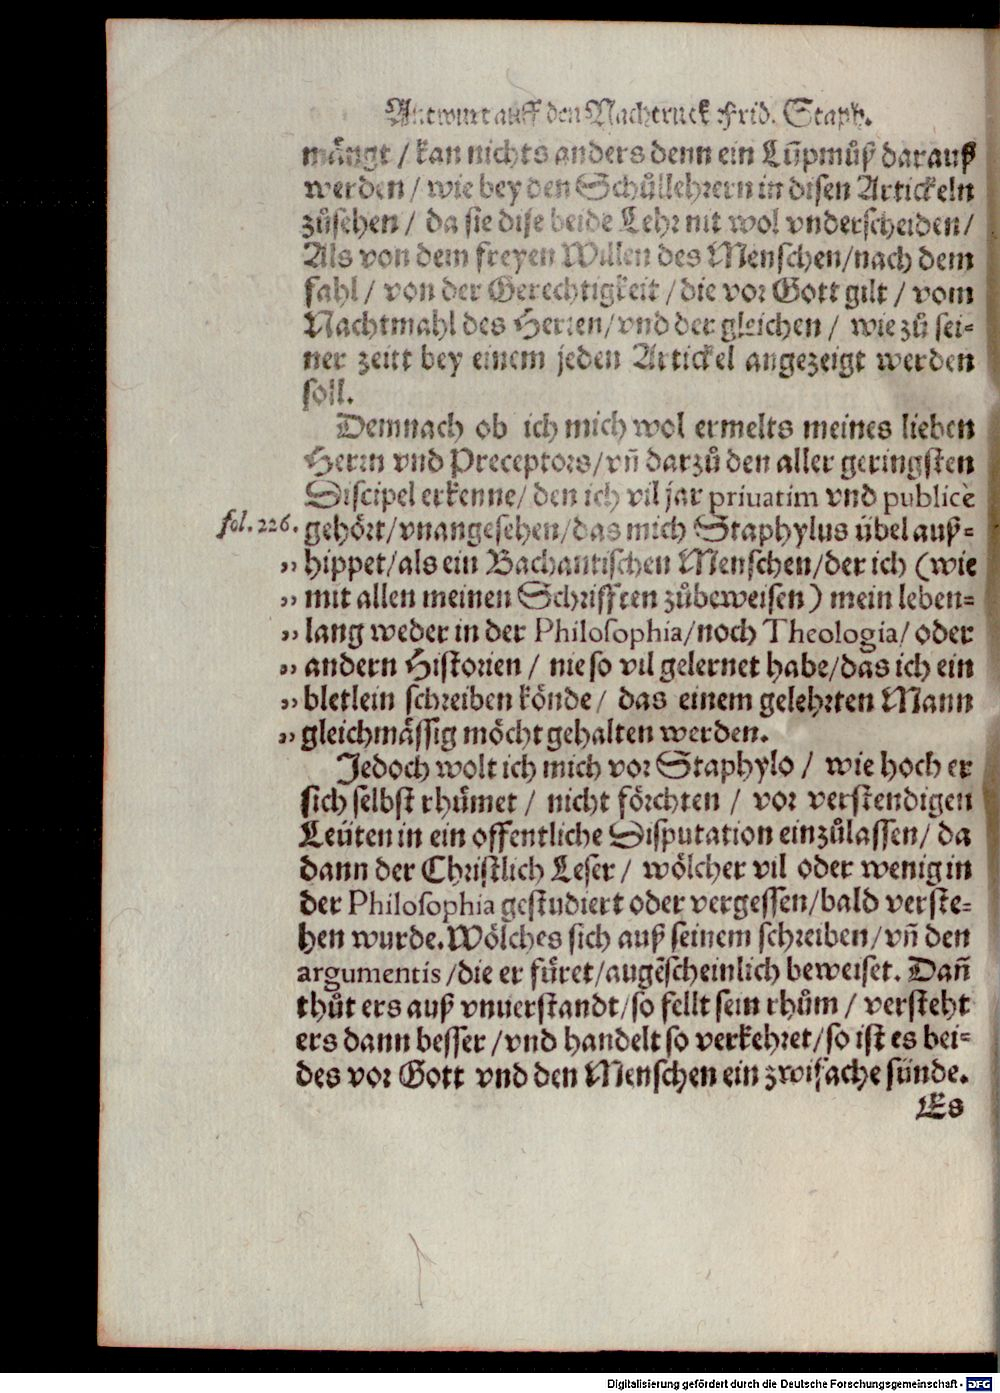 Antwurt auff den Nachtruck Frid. Staph.
mängt / kan nichts anders denn ein Lüpmůß darauß
werden / wie bey den Schůllehrern in disen Artickeln
zůsehen / da sie dise beide Lehr nit wol vnderscheiden /
Als von dem freyen Willen des Menschen/nach dem
fahl / von der Gerechtigkeit / die vor Gott gilt / vom
Nachtmahl des Herren/vnd der gleichen / wie zů sei-
ner zeitt bey einem jeden Artickel angezeigt werden
soll.
Demnach ob ich mich wol ermelts meines lieben
Herrn vnd Preceptors/vñ darzů den aller geringsten
Discipel erkenne/ den ich vil jar priuatim vnd publicè
fol. 226. gehört/vnangesehen/das mich Staphylus übel auß-
„ hippet/als ein Bachantischen Menschen/der ich (wie
„ mit allen meinen Schrifften zůbeweisen) mein leben-
„ lang weder in der Philosophia/noch Theologia/ oder
„ andern Historien / nie so vil gelernet habe/das ich ein
„ bletlein schreiben könde/ das einem gelehrten Mann
„ gleichmässig möcht gehalten werden.
Jedoch wolt ich mich vor Staphylo / wie hoch er
sich selbst rhůmet / nicht förchten / vor verstendigen
Leüten in ein offentliche Disputation einzůlassen/ da
dann der Christlich Leser / wölcher vil oder wenig in
der Philosophia gestudiert oder vergessen/bald verste-
hen wurde. Wölches sich auß seinem schreiben/vñ den
argumentis /die er fůret/augẽscheinlich beweiset. Dañ
thůt ers auß vnuerstandt/so fellt sein rhům / versteht
ers dann besser /vnd handelt so verkehret/so ist es bei-
des vor Gott vnd den Menschen ein zwifache sünde.
Es
Digitalisierung gefördert durch die Deutsche Forschungsgemeinschaft - DFG